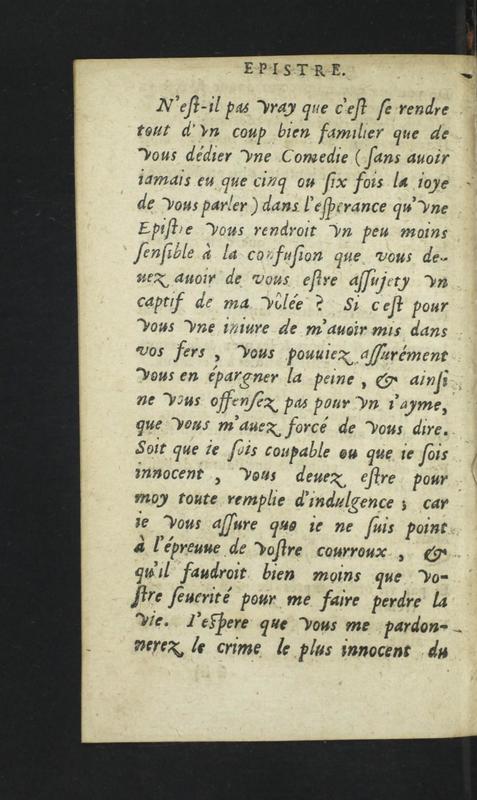 EPISTRE.
N'eſt-il pas vray que c'eſt ſe rendre
tout d'vn coup bien familier que de
vous dédier vne Comedie (ſans auoir
iamais eu que cinq ou ſix fois la ioye
de vous parler) dans l'eſperance qu'vne
Epiſtre vous rendroit vn peu moins
ſenſible à la confuſion que vous de-
uez auoir de vous eſtre aſſujety vn
captif de ma vôlée ? Si c'eſt pour
vous vne iniure de m'auoir mis dans
vos fers , vous pouuiez aſſurément
vous en épargner la peine , & ainſi
ne vous offenſez pas pour vn i'ayme,
que vous m'auez forcé de vous dire.
Soit que ie ſois coupable ou que ie ſois
innocent , vous deuez eſtre pour
moy toute remplie d'indulgence ; car
ie vous aſſure que ie ne ſuis point
à l'épreuue de voſtre courroux , &
qu'il faudroit bien moins que vo-
ſtre ſeuerité pour me faire perdre la
vie. I'eſpere que vous me pardon-
nerez le crime le plus innocent du